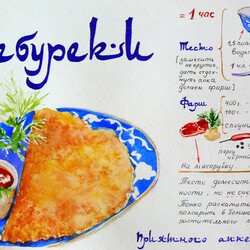 ебуреки
= 1 час
Тесто
1,5
воды
1 ч.л.
[замесить
не крутое,
дать отдох-
нуть пока
делаем фарш]
Фарш
400 г.
100 г.
специи
перец
на мясорубку
Тесто домесить
но не
Тонко раскатать
пожарить в больш
растительного
Приятного аппе